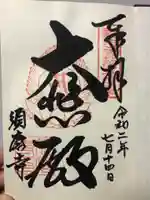 奉拝
令和二年
七月十四日
大悲殿
須磨寺